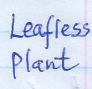 Leafless
plant